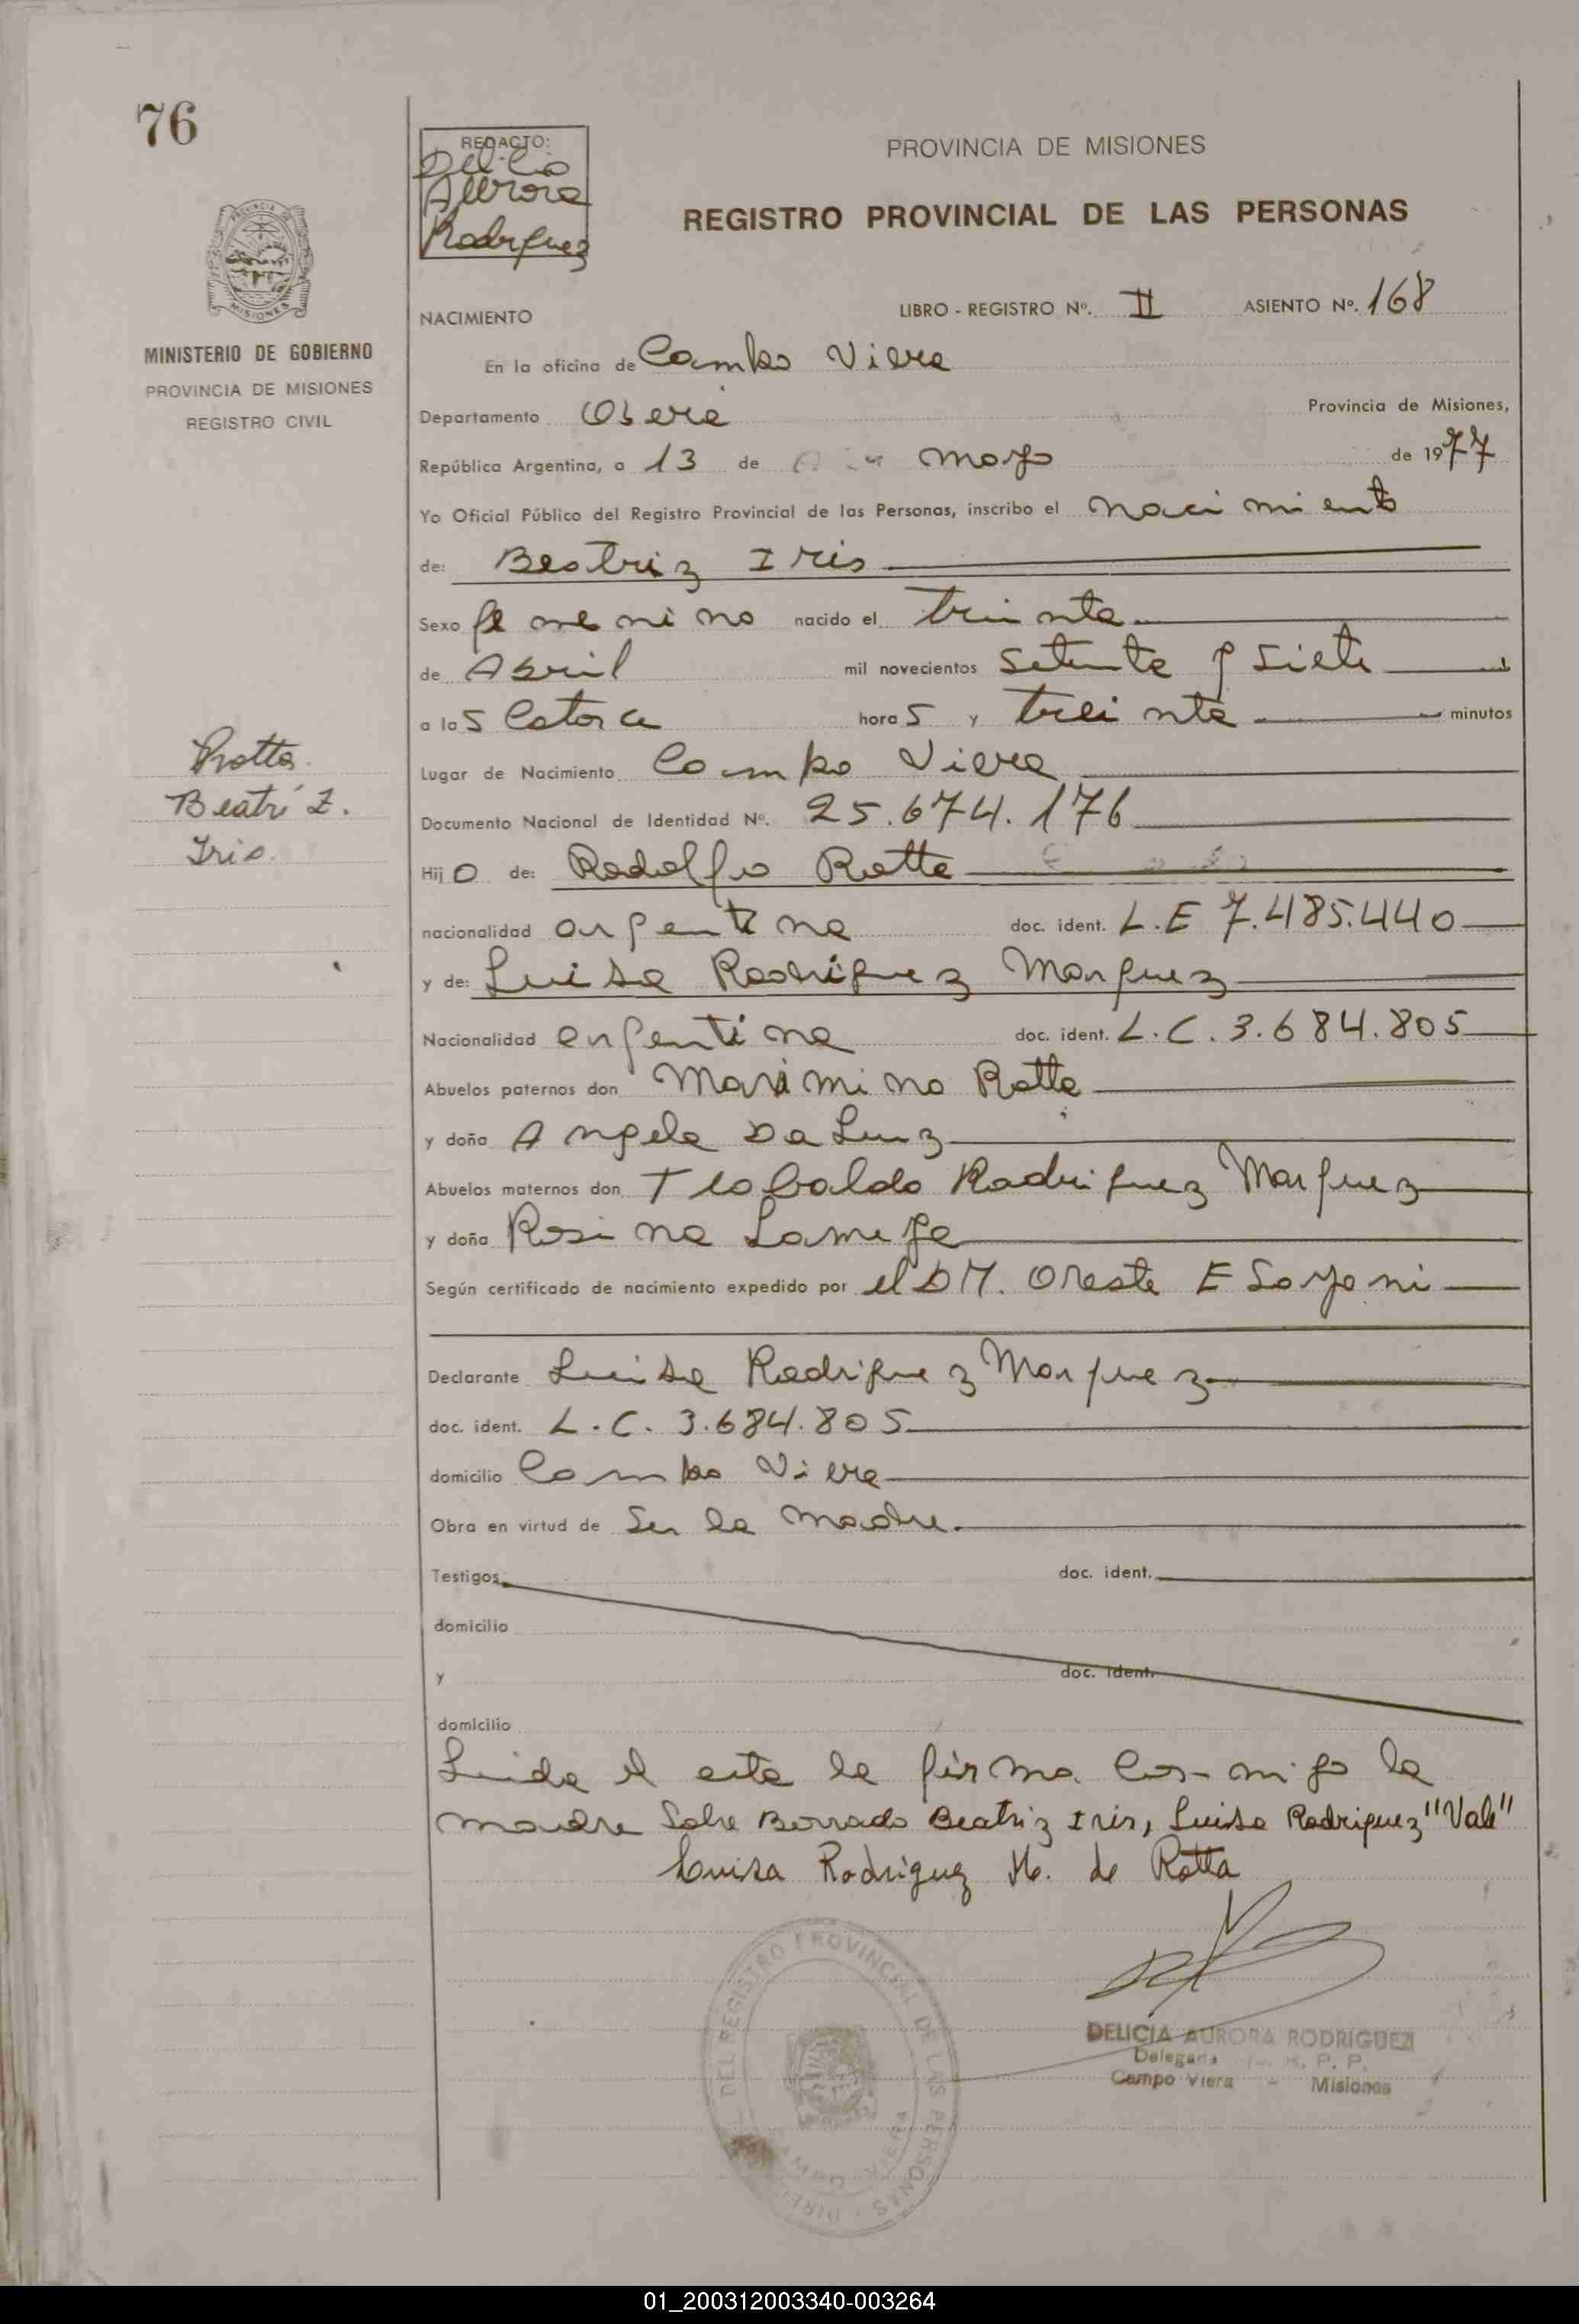 76
REDACTO:
Aurora
Rodriguez
PROVINCIA DE MISIONES
REGISTRO PROVINCIAL DE LAS PERSONAS
MISIONES
MINISTERIO DE GOBIERNO
PROVINCIA DE MISIONES
REGISTRO CIVIL
NACIMIENTO LIBRO - REGISTRO Nº. II ASIENTO Nº. 168
En la oficina de Campo Viera
Departamento Oberá Provincia de Misiones,
República Argentina, a 13 de mayo de 1977
Yo Oficial Público del Registro Provincial de las Personas, inscribo el nacimiento
de: Beatriz Iris
Sexo femenino nacido el treinta
de Abril mil novecientos setenta y siete
a las Catorce horas y treinta minutos
Rotta
Beatríz.
Iris.
Lugar de Nacimiento Campo Viera
Documento Nacional de Identidad Nº. 25.674.176
Hijo de: Rodolfo Rotta
nacionalidad argentina doc. ident. L.E 7.485.440
y de: Luisa Rodriguez Marquez
Nacionalidad argentina doc. ident. L.C. 3.684.805
Abuelos paternos don Maximino Rotta
y doña Angela Da Luz
Abuelos maternos don Teobaldo Rodriguez Marquez
y doña Rosina
Según certificado de nacimiento expedido por el Oreste E
Declarante Luisa Rodriguez Marquez
doc. ident. L.C. 3.684.805
domicilio Campo Viera
Obra en virtud de Ser la madre.
Testigos doc. ident.
domicilio
y doc. ident.
domicilio
Leida el acta la firma conmigo la
madre Sobre Borrado Beatriz Iris, Luisa Rodriguez "Vale"
Luisa Rodriguez M. de Rotta
DEL REGISTRO PROVINCIAL DE LAS PERSONAS
DELICIA AURORA RODRIGUEZ
Delegada R. P. P.
Campo Viera - Misiones
01_200312003340-003264